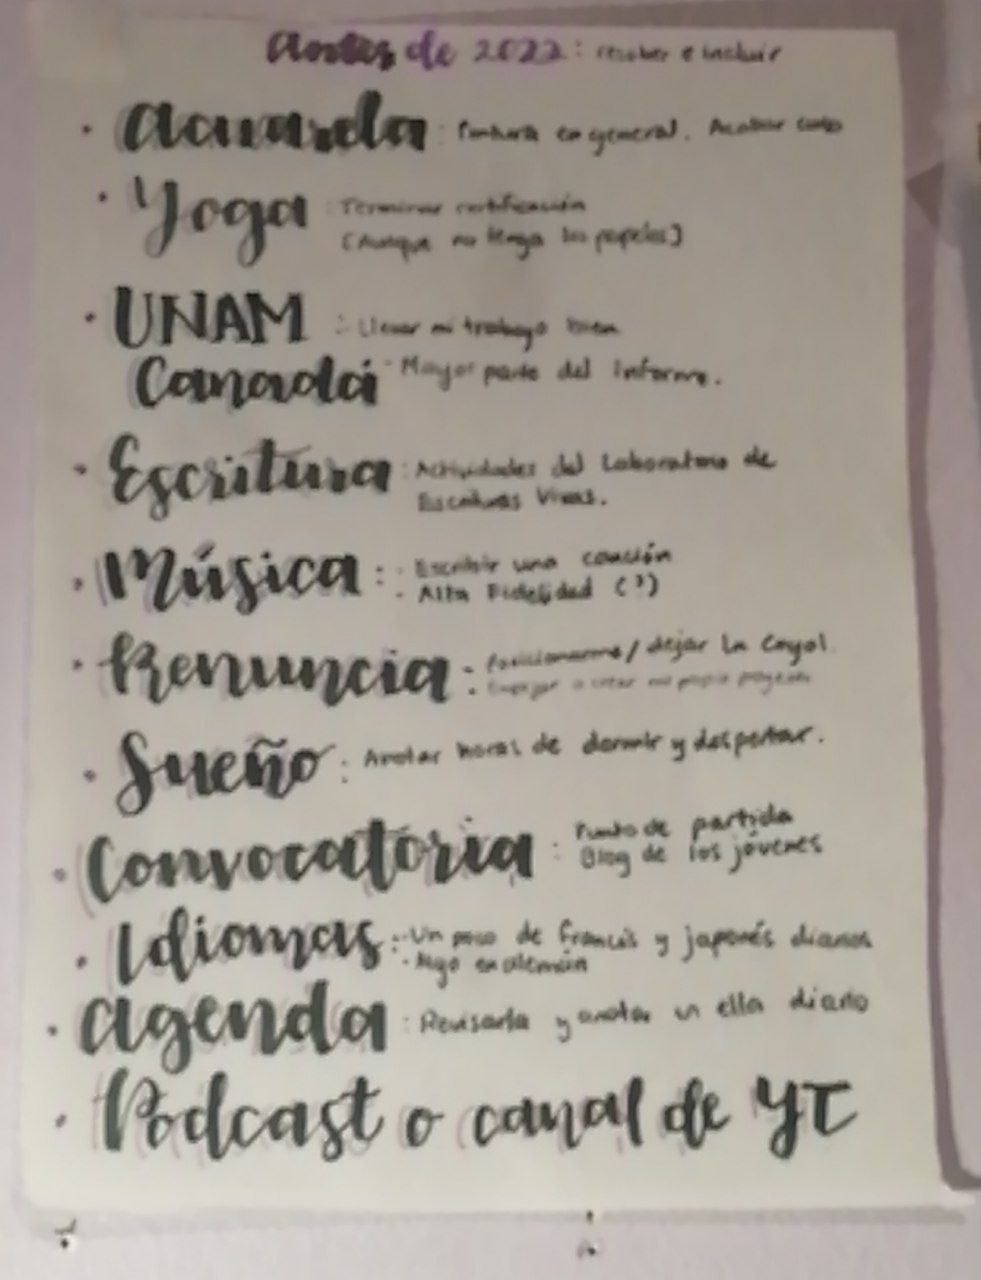 Antes de 2022: resolver e incluir
· Acuarela: Pintura en general. Acabar curso
· Yoga: Terminar certificación
(Aunque no tenga los papeles)
· UNAM: · Llevar mi trabajo bien
Canadá · Mayor parte del informe.
· Escritura: Actividades del Laboratorio de
Escrituras Vivas.
· Música: · Escribir una canción
· Alta Fidelidad (?)
· Renuncia: · Posicionarme/dejar La Coyol.
· Empezar a crear mi propio
· Sueño: Anotar horas de dormir y despertar.
· Convocatoria: Punto de partida
Blog de los jóvenes
· Idiomas: · Un poco de francés y japonés diarios
· Algo en alemán
· Agenda: Revisarla y anotar en ella diario
· Podcast o canal de YT